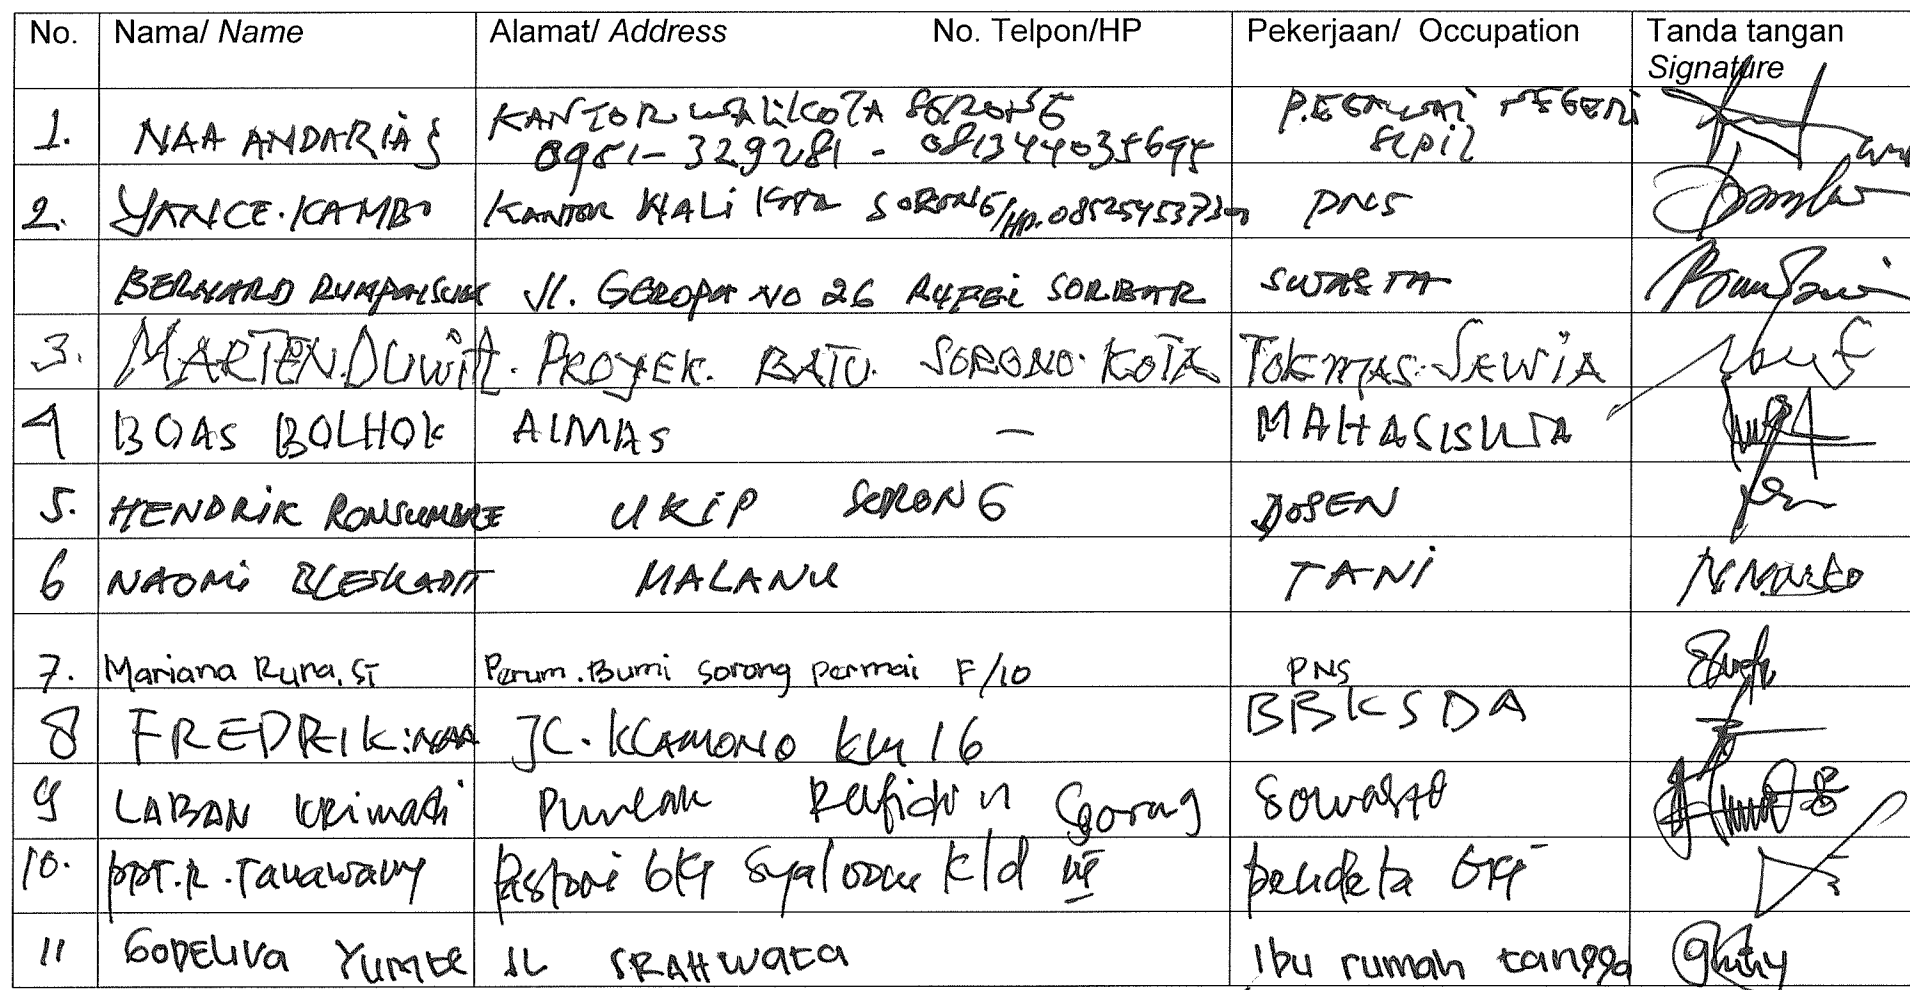 No. Nama/ Name Alamat/ Address No. Telpon/HP Pekerjaan/ Occupation Tanda tangan
Signature
1. NAA ANDARIAS KANTOR WALIKOTA SORONG PEGAWAI NEGERI
0951-329281 - 081344035695 SIPIL
2. YANCE.KAMBO KANTOR WALI KOTA SORONG/HP. PNS
BERNARD Jl. GEROPA NO 26 RUFEI SORBAR SWASTA
3. MARTEN.DUWIT. PROYEK. BATU. SORONG.KOTA TOKMAS.
4 BOAS BOLHOK AIMAS – MAHASISWA
5. HENDRIK RONSUMBRE UKIP SORONG DOSEN
6 NAOMI BLESKADIT MALANU TANI
7. Mariana Runa, ST Perum. Bumi Sorong permai F/10 PNS
8 FREDRIK:NAA JL. KLAMONO KM 16 BBKSDA
9 LABAN KRIMADI Puncak Rafidin Sorong Sowasta
10. PDT.R. Tauawany Pastori GKI Syaloom Kld III pendeta GKI
11 GODELIVA YUMTE JL SRAHWATA Ibu rumah tangga